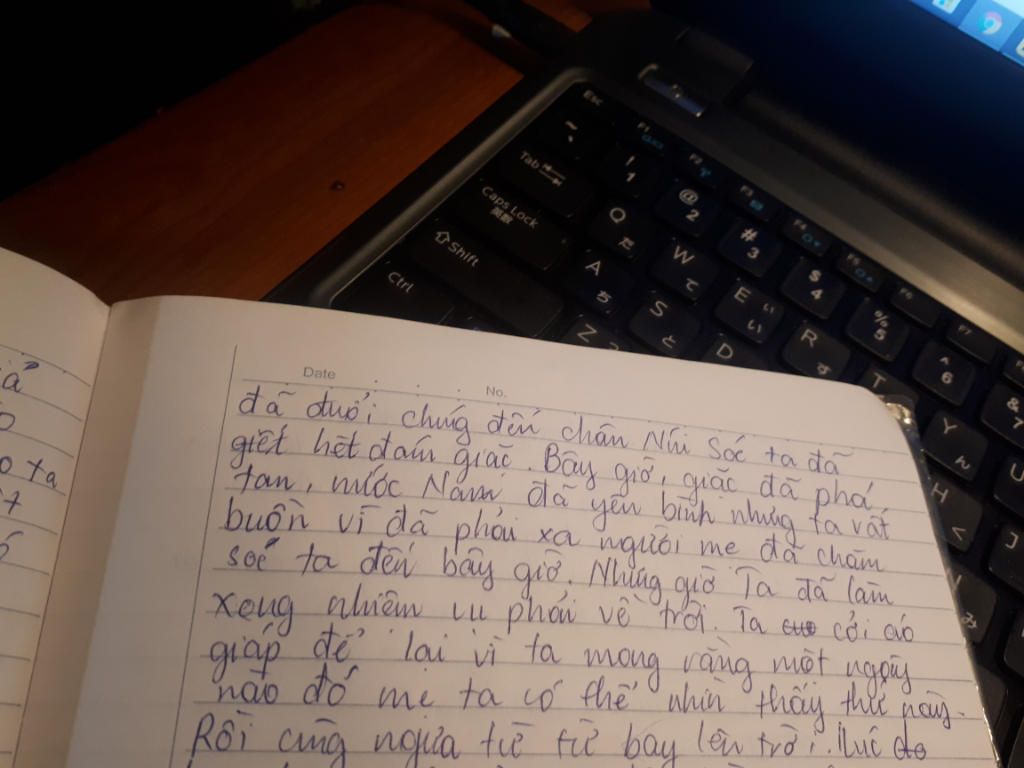 Date . . . No.
đã đuổi chúng đến chân Núi Sóc ta đã
giết hết đám giặc. Bây giờ, giặc đã phá
tan, nước Nam đã yên bình nhưng ta vất
buồn vì đã phải xa người mẹ đã chăm
soc ta đến bây giờ. Nhưng giờ Ta đã làm
xong nhiệm vụ phải về trời. Ta cởi áo
giáp để lại vì ta mong rằng một ngày
nào đó mẹ ta có thể nhìn thấy thứ này.
Rồi cùng ngựa từ từ bay lên trời. Lúc
ta
Esc
F1
F2
F3
F4
F5
F6
F7
~
!
1
@
2
#
3
$
4
%
5
^
6
&
7
Tab
Q
た
W
て
E
い
R
す
T
Y
ん
U
Caps Lock
英数
A
ち
S
と
D
H
く
J
Shift
Z
Ctrl